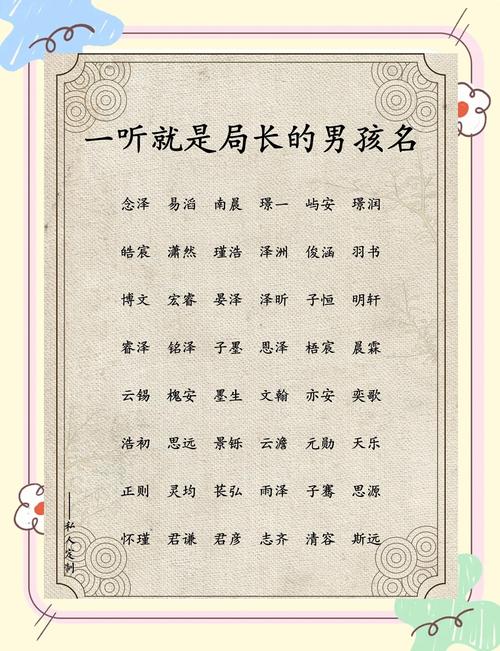 一听就是局长的男孩名
念泽 易滔 南晨 璟一 屿安 璟润
皓宸 潇然 瑾浩 泽洲 俊涵 羽书
博文 宏睿 晏泽 泽昕 子恒 明轩
睿泽 铭泽 子墨 恩泽 梧宸 晨霖
云锡 槐安 墨生 文翰 亦安 奕歌
浩初 思远 景铄 云澹 元勋 天乐
正则 灵均 苌弘 雨泽 子骞 思源
怀瑾 君谦 君彦 志齐 清容 斯远
——私人定制